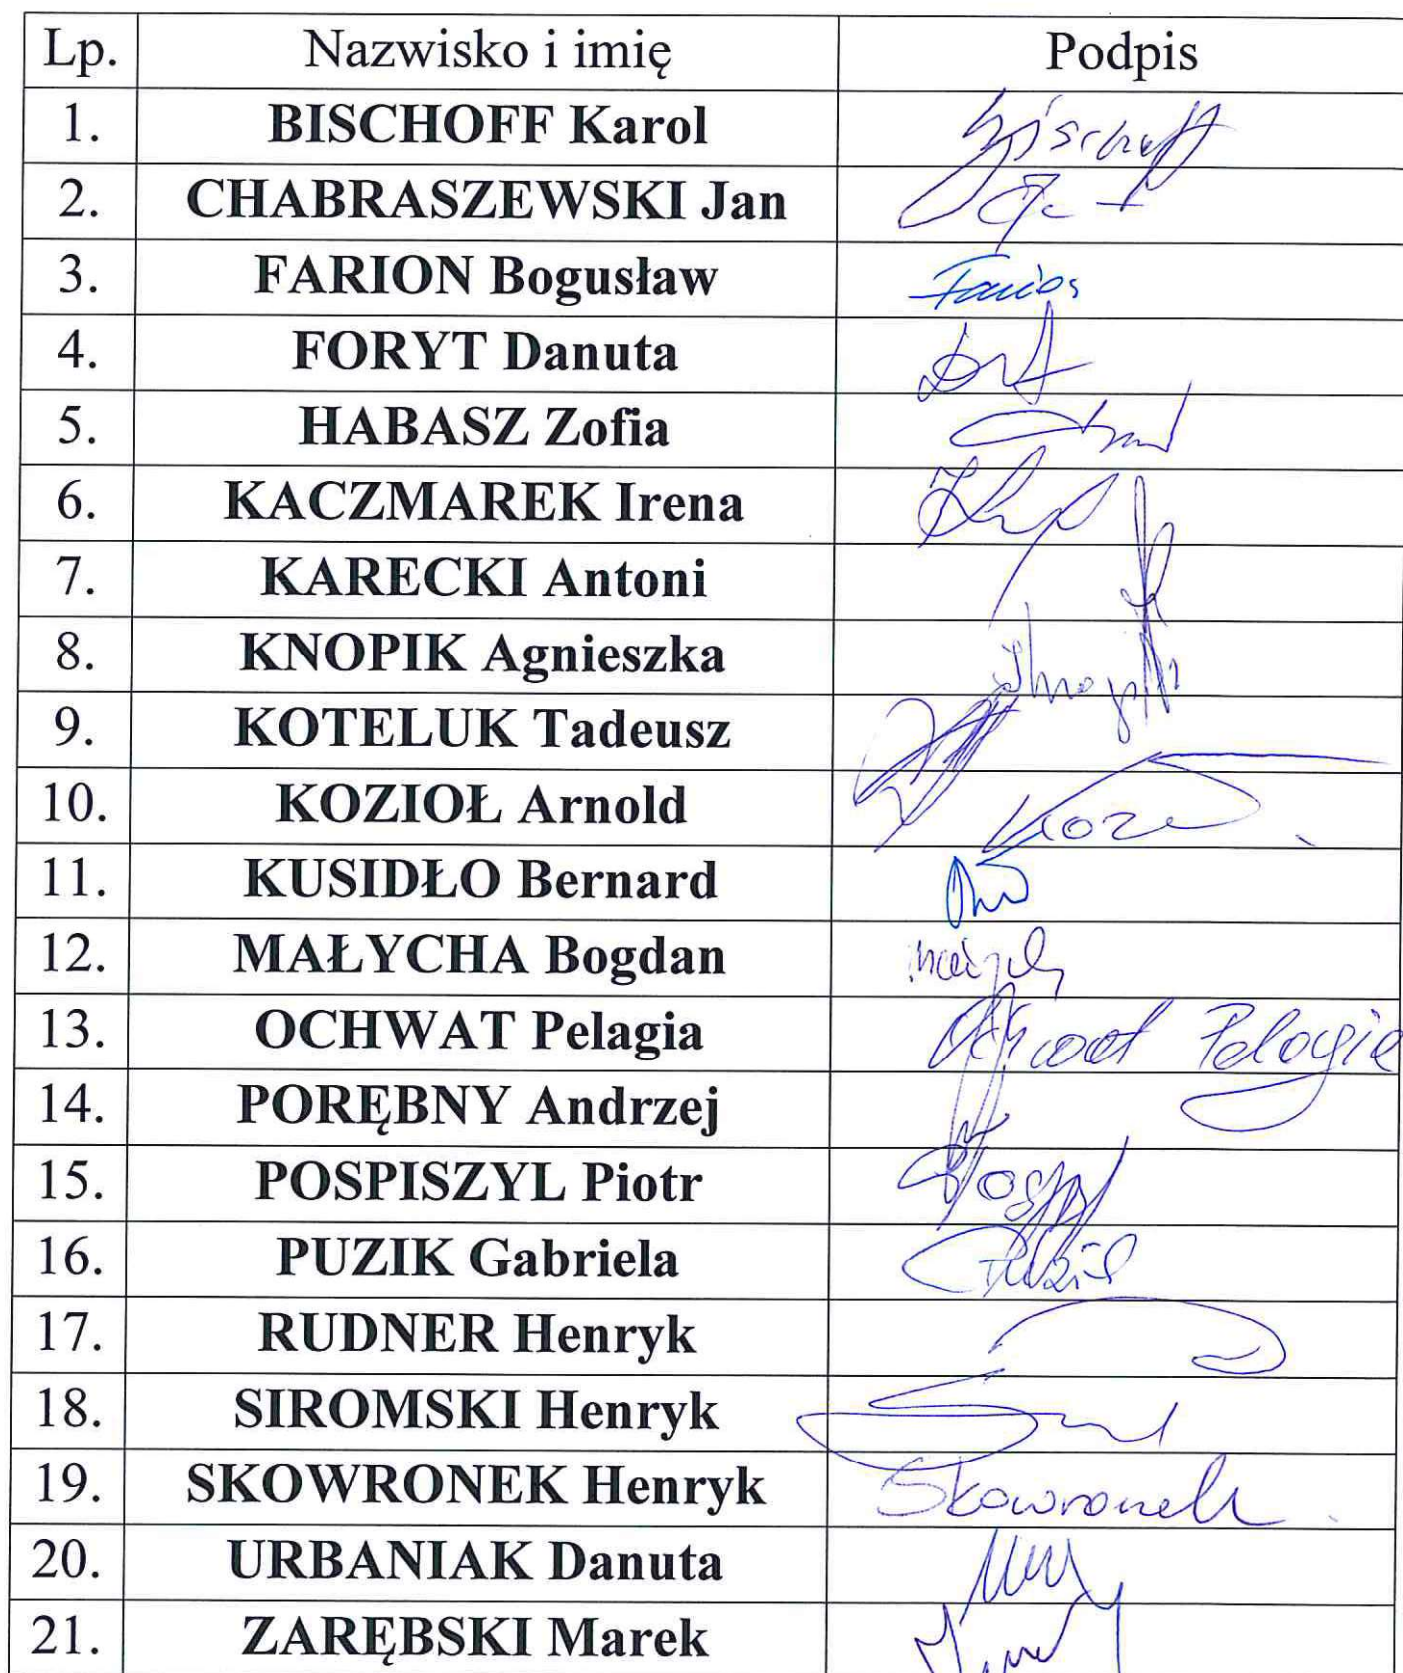 Lp. Nazwisko i imię Podpis
1. BISCHOFF Karol Bischoff
2. CHABRASZEWSKI Jan
3. FARION Bogusław
4. FORYT Danuta
5. HABASZ Zofia
6. KACZMAREK Irena
7. KARECKI Antoni
8. KNOPIK Agnieszka
9. KOTELUK Tadeusz
10. KOZIOŁ Arnold
11. KUSIDŁO Bernard
12. MAŁYCHA Bogdan
13. OCHWAT Pelagia Ochwat Pelagia
14. PORĘBNY Andrzej
15. POSPISZYL Piotr
16. PUZIK Gabriela Puzik
17. RUDNER Henryk
18. SIROMSKI Henryk
19. SKOWRONEK Henryk Skowronek
20. URBANIAK Danuta
21. ZARĘBSKI Marek